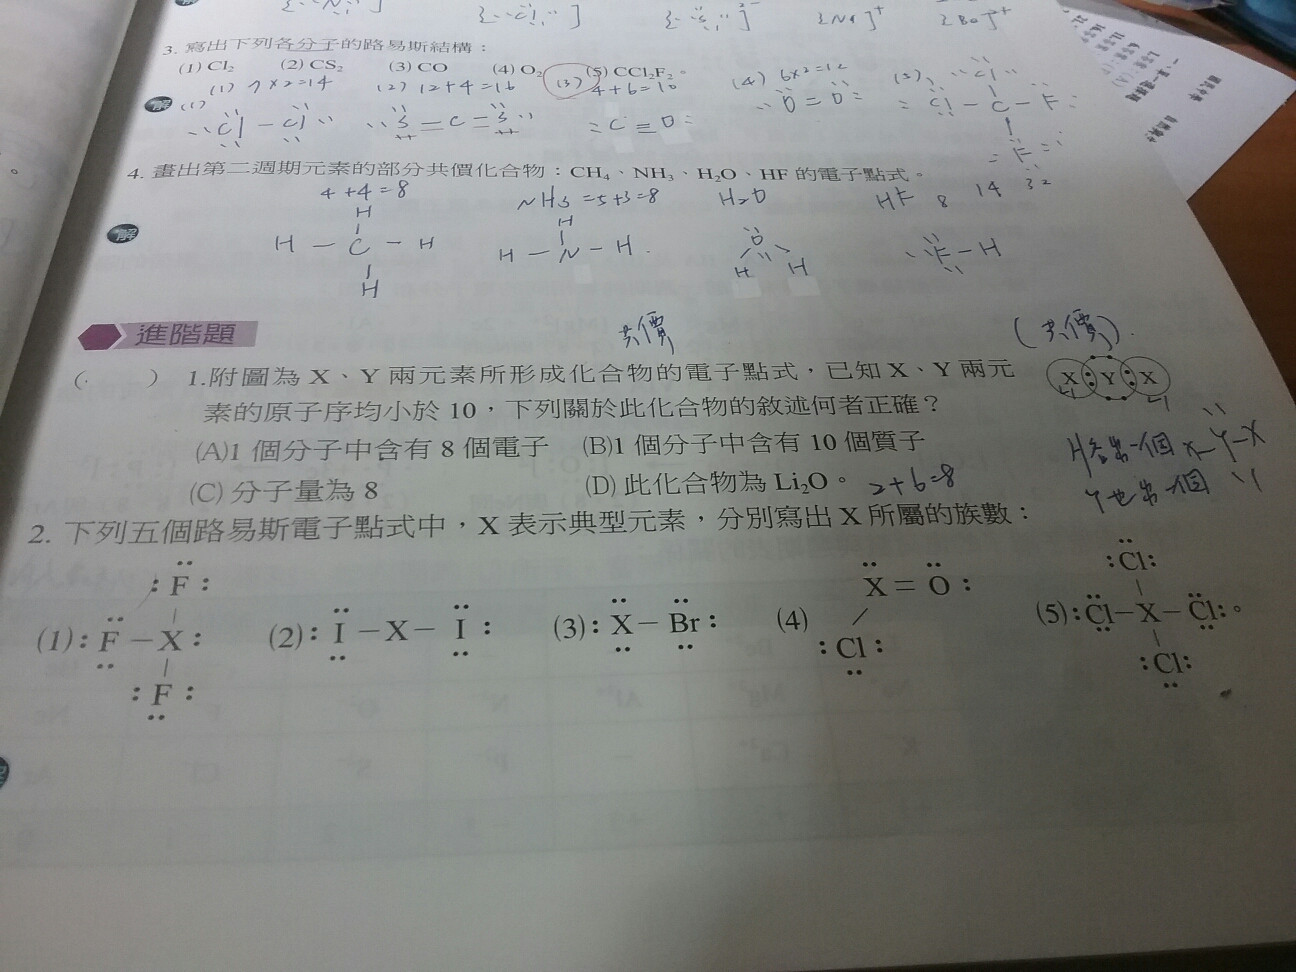 3. 寫出下列各分子的路易斯結構：
(1) Cl₂ (2) CS₂ (3) CO (4) O₂ (5) CCl₂F₂。
(1) 7×2=14 (2) 12+4=16 (3) 4+6=10 (4) 6×2=12 (5)
解 (1) Cl − Cl S = C = S :C ≡ O: O = O Cl − C − F
Cl
F
4. 畫出第二週期元素的部分共價化合物：CH₄、NH₃、H₂O、HF 的電子點式。
4+4=8 NH3=5+3=8 H2O HF 8 14 32
解
H
H − C − H
H
H
H − N − H
O
H H
F − H
進階題
共價 (共價)
( ) 1.附圖為 X、Y 兩元素所形成化合物的電子點式，已知 X、Y 兩元
素的原子序均小於 10，下列關於此化合物的敘述何者正確？
X Y X
(A)1 個分子中含有 8 個電子 (B)1 個分子中含有 10 個質子
(C) 分子量為 8 (D) 此化合物為 Li₂O。 2+6=8
X−Y−X
2. 下列五個路易斯電子點式中，X 表示典型元素，分別寫出 X 所屬的族數：
(1) :F − X :
:F:
:F:
(2) :I − X − I:
(3) :X − Br:
(4) X = O:
:Cl:
(5) :Cl − X − Cl:。
:Cl:
:Cl: